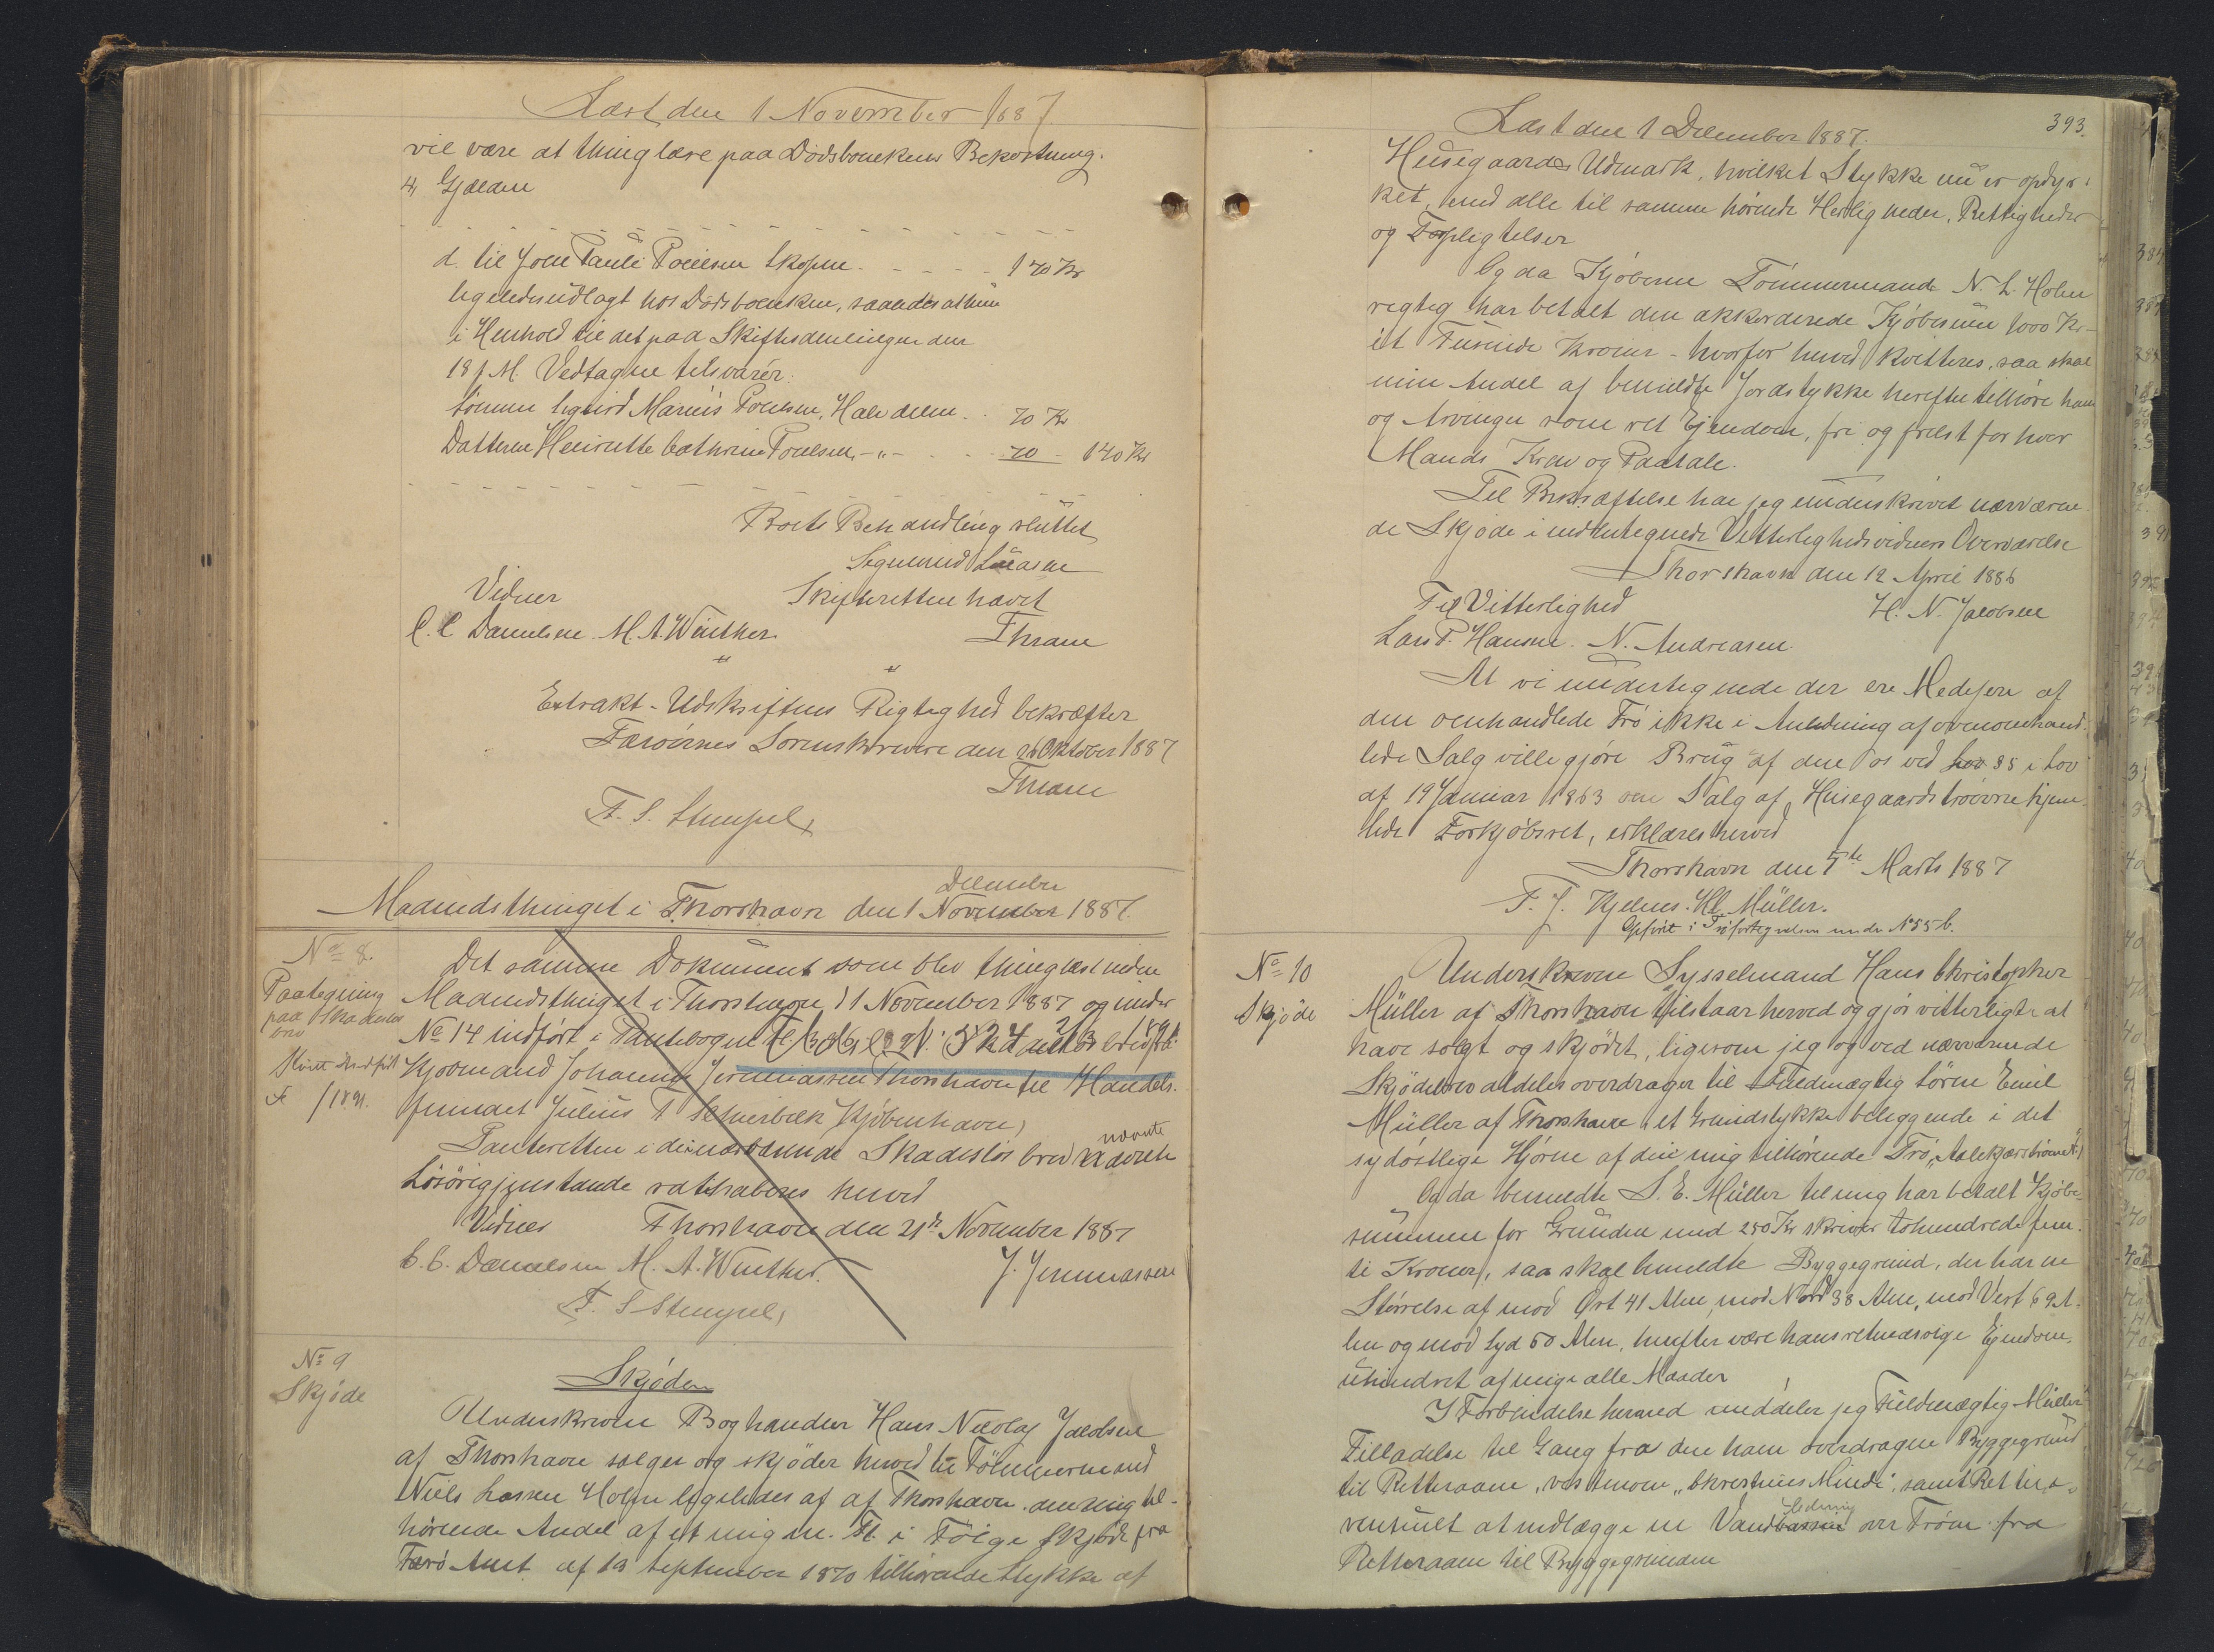 Læst den 1 November 1887
vil være at thinglæse paa Dödsboenkens Bekostning.
4, Gjælden
d. til Joen Pauli Poulsen Skopen 170 Kr
ligeledes udlagt hos Dödsboenken, saaledes at hun
i Henhold til det paa Skiftesamlingen den
18 f. M. Vedtagne tilsvarer:
Sönnen Sigurd Marius Poulsen, Halvdelen 70 Kr
Datteren Henriette Cathrine Poulsen, -"- 70 - 140 Kr
Boets Behandling sluttet
Skifteretten hævet
Vidner
C. C. Danielsen. M. A. Winther.
Thrane
Extrakt-Udskriftens Rigtighed bekræfter
Færöernes Sorenskriveri den 26 Oktober 1887
Thrane
F. S. Stempel
December
Maanedsthinget i Thorshavn den 1 November 1887.
No 8.
Paategning
paa Skadeslös
brev
Det samme Dokument som blev thinglæst inden
Maanedsthinget i Thorshavn d 1 November 1887 og under
No 14 indført i Pantebogen
Kjøbmand Johannes Jeremiassen Thorshavn til Handels-
firmaet Julius Kjöbenhavn)
Panteretten i de i nærværende Skadeslösbrev nævnte
Lösöregjenstande
Vidner Thorshavn den 21de November 1887
C. C. Danielsen M. A. Winther. J. Jeremiassen
F. S. Stempel,
No 9
Skjøde
Skjöde
Underskrevne Boghandler Hans Nicolaj Jacobsen
af Thorshavn sælger og skjöder herved til Tömmermand
Niels Lassen Holm ligeledes af af Thorshavn den mig til-
hörende Andel af et mig m. Fl. i Fölge Skjöde fra
Færö Amt af 19 September 1870 tilhörende Stykke af
393.
Læst den 1 December 1887.
Husegaardes Udmark, hvilket Stykke nu er opdyr-
ket, med alle til samme hörende Herligheder, Rettigheder
og Forpligtelser
Og da Kjöberen Tömmermand N. L. Holm
rigtig har betalt den akkorderede Kjöbesum 1000 Kr-
et Tusinde Kroner - hvorfor herved kvitteres, saa skal
min Andel af bemeldte Jordstykke herefter tilhöre ham
og Arvinger som ret Ejendom, fri og frelst for hver
Mands Krav og Paatale.
Til Bekræftelse har jeg underskrevet nærværen-
de Skjöde i medundertegnede Vitterlighedsvidners Overværelse
Thorshavn den 12 April 1886
Til Vitterlighed H. N. Jacobsen
Lars P. Hansen. N. Andreasen.
At vi undertegnede der ere Medejere af
den omhandlede Trö ikke i Anledning af ovenomhand-
lede Salg ville gjöre Brug af den os ved i Lov
af 19 Januar 1863 om Salg af Husegaardströerne hjem-
lede Forkjöbsret, erklæres herved
Thorshavn den 7de Marts 1887
F. J. Müller.
Opfört i Tröfortegnelsen under No 55 b.
No 10
Skjöde
Underskrevne Sysselmand Hans Christopher
Müller af Thorshavn tilstaar herved og gjör vitterligt at
have solgt og skjödet, ligesom jeg og ved nærværende
Skjödebrev aldeles overdrager til Fuldmægtig Sören Emil
Müller af Thorshavn et Grundstykke beliggende i det
sydöstlige Hjörne af den mig tilhörende Trö
Og da bemeldte S. E. Müller til mig har betalt Kjöbe-
summen for Grunden med 250 Kr skriver tohundrede fem-
ti Kroner, saa skal bemeldte Byggegrund, der har en
Störrelse af mod Öst 41 Alen mod Nord 38 Alen, mod Vest 69 A-
len og mod Syd 50 Alen, herefter være hans retmæssige Ejendom,
uhindret af mig i alle Maader
I Forbindelse hermed meddeler jeg Fuldmægtig Müller
Tilladelse til Gang fra den ham overdragne Byggegrund
til Retteraaen, vestenom „Christines Minde", samt Ret til e-
ledning
ventuelt at nedlægge en Vandbassin over Tröen fra
Retteraaen til Byggegrunden